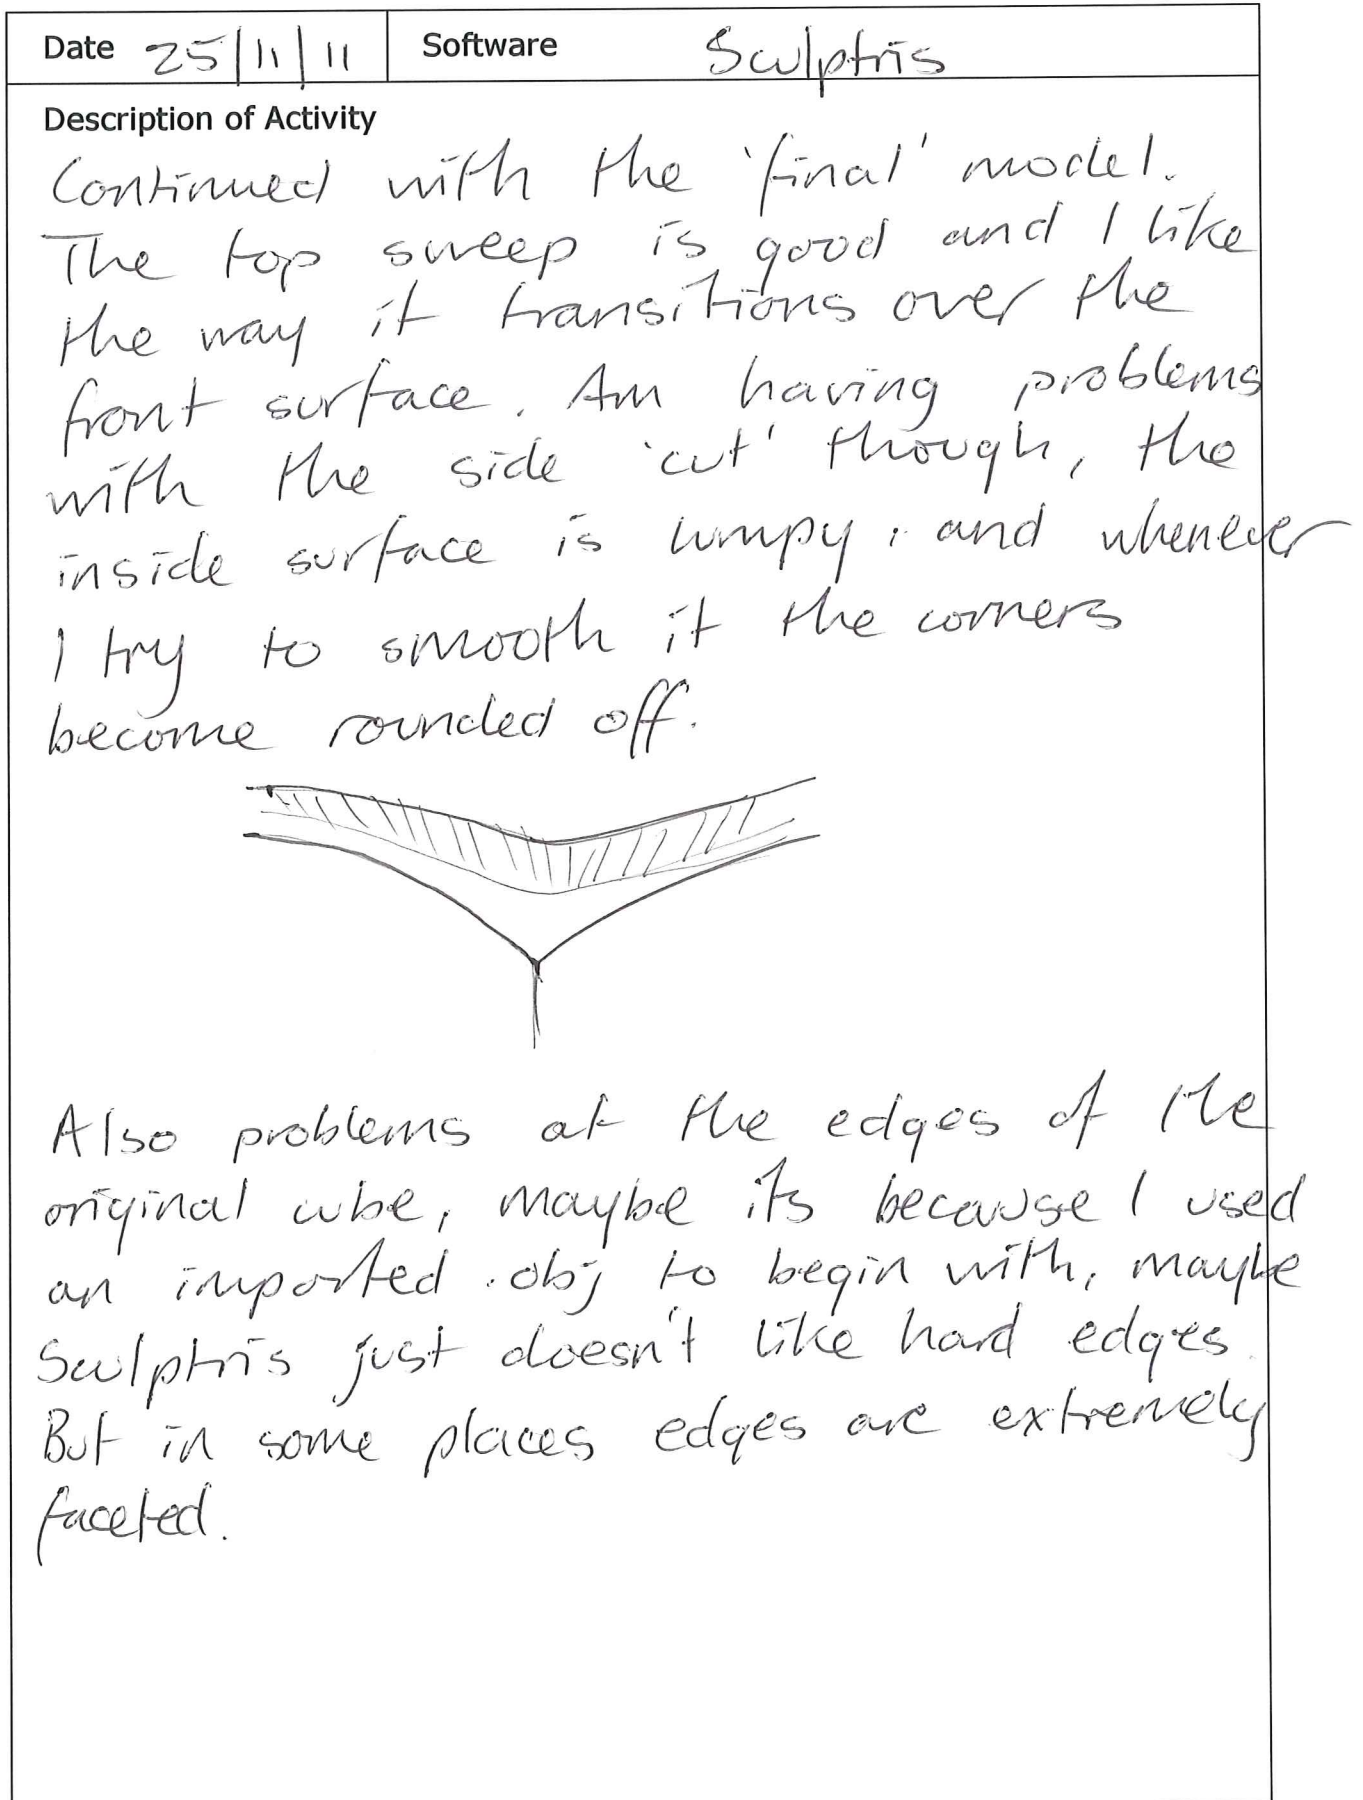 Date 25/11/11 Software Sculptris
Description of Activity
Continued with the 'final' model.
The top sweep is good and I like
the way it transitions over the
front surface. Am having problems
with the side 'cut' though, the
inside surface is lumpy, and whenever
I try to smooth it the corners
become rounded off.
Also problems at the edges of the
original cube, maybe its because I used
an imported .obj to begin with, maybe
Sculptris just doesn't like hard edges.
But in some places edges are extremely
faceted.